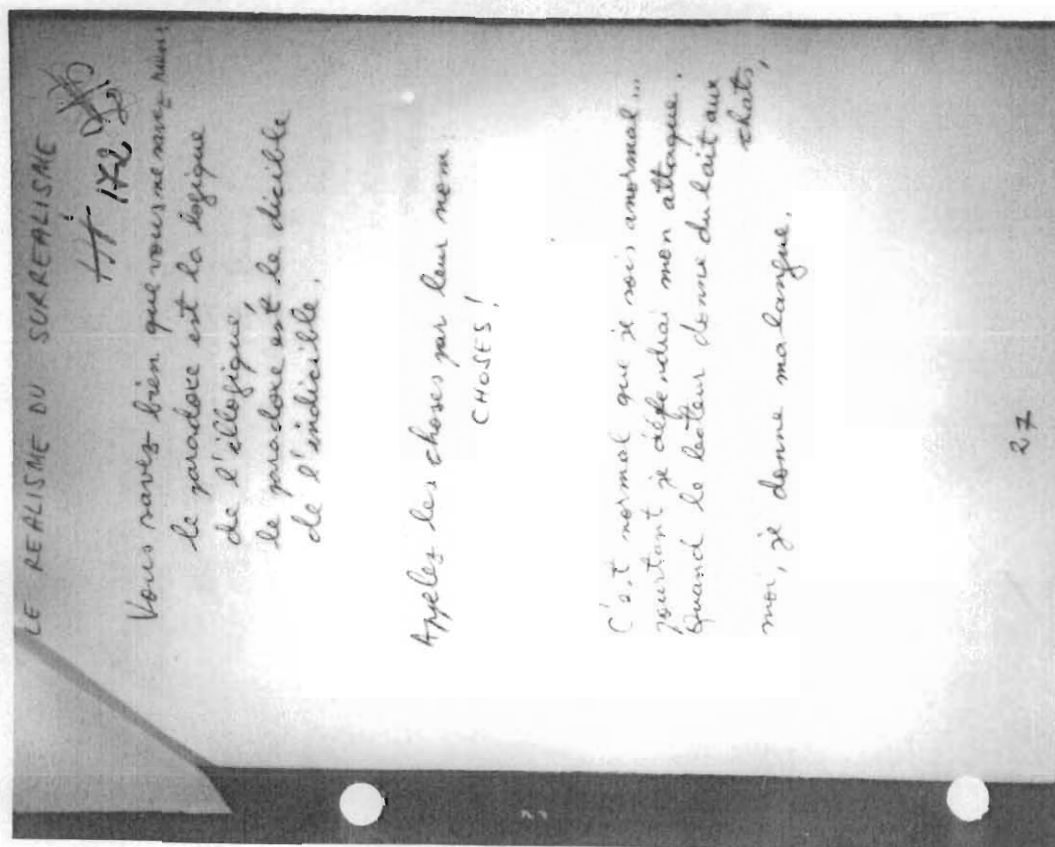 LE REALISME DU SURREALISME
172
Vous savez bien que vous ne savez rien
le paradoxe est la logique
de l'illogique
le paradoxe est le dicible
de l'indicible.
Appelez les choses par leur nom
CHOSES!
C'est normal que je sois anormal...
pourtant je défendrai mon attaque.
Quand le lecteur donne du lait aux
chats,
moi, je donne ma langue.
27